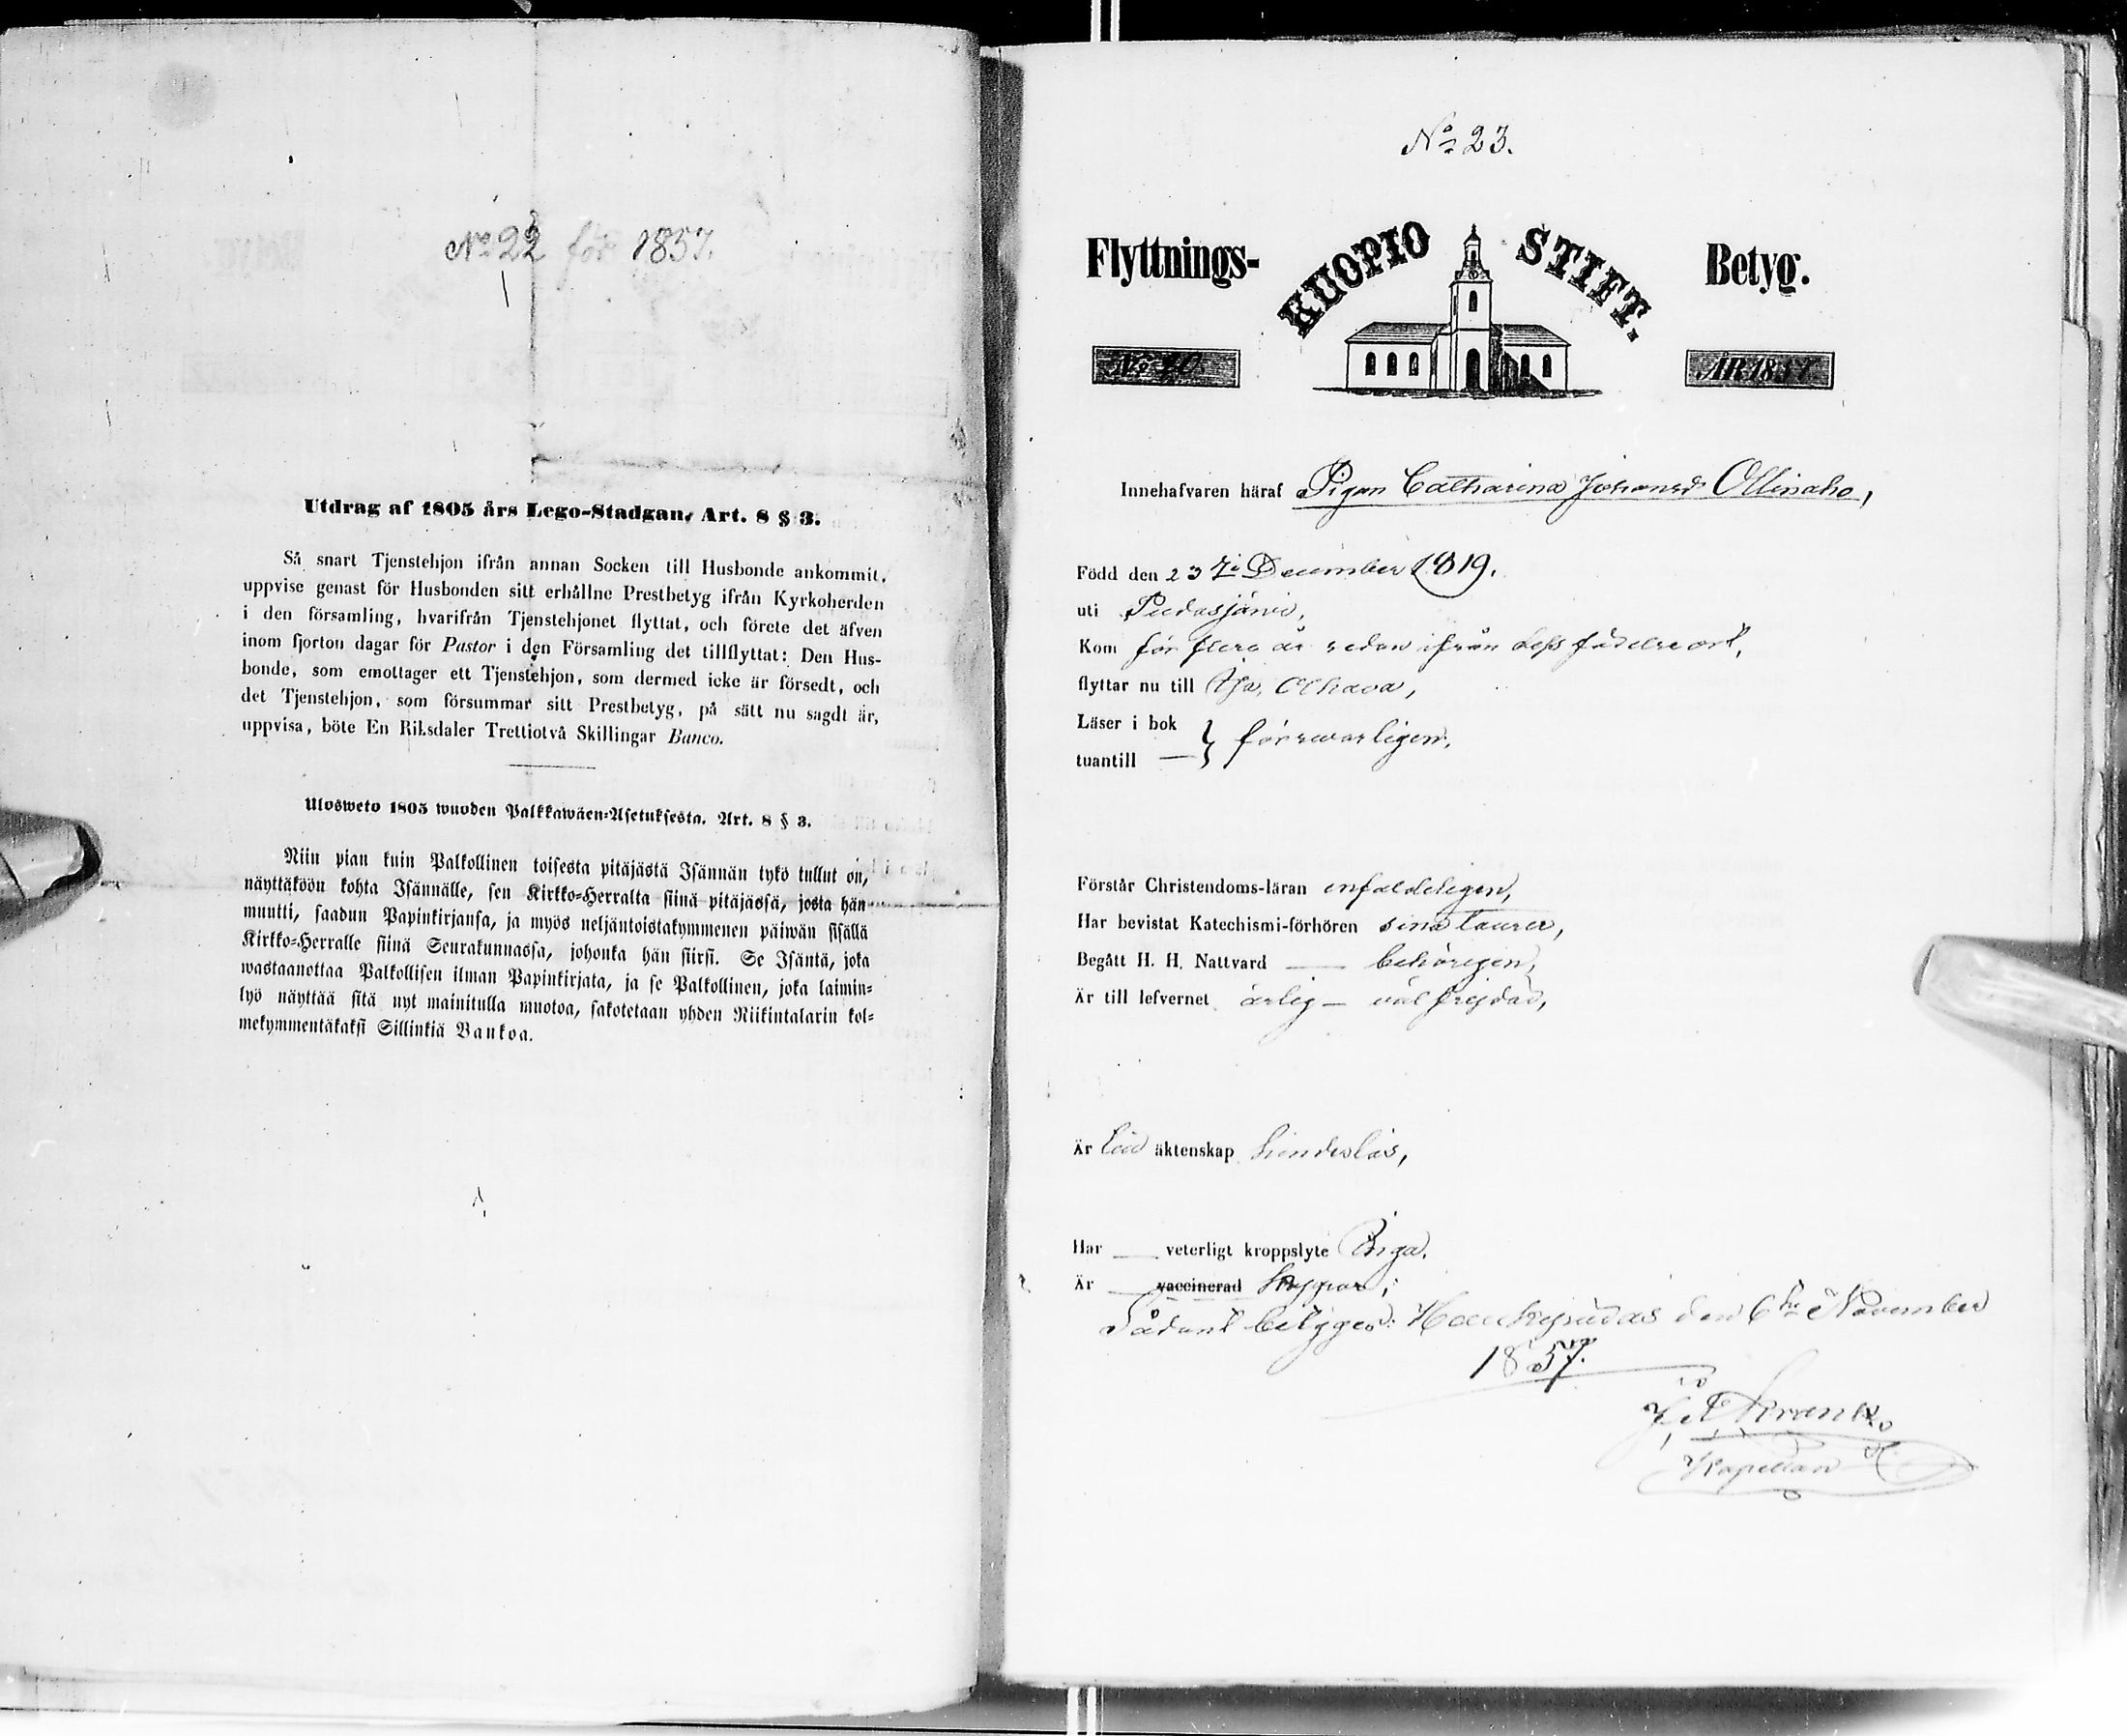 No 22 för 1857.
Utdrag af 1805 års Lego-Stadgan, Art. 8 § 3.
Så snart Tjenstehjon ifrån annan Socken till Husbonde ankommit,
uppvise genast för Husbonden sitt erhållne Prestbetyg ifrån Kyrkoherden
i den församling, hvarifrån Tjenstehjonet flyttat, och förete det äfven
inom fjorton dagar för Pastor i den Församling det tillflyttat: Den Hus-
bonde, som emottager ett Tjenstehjon, som dermed icke är försedt, och
det Tjenstehjon, som försummar sitt Prestbetyg, på sätt nu sagdt är,
uppvisa, böte En Riksdaler Trettiotvå Skillingar Banco.
Ulosweto 1805 wuoden Palkkawäen-Asetuksesta. Art. 8 § 3.
Niin pian kuin Palkollinen toisesta pitäjästä Isännän tykö tullut on,
näyttäköön kohta Isännälle, sen Kirkko-Herralta siinä pitäjässä, josta hän
muutti, saadun Papinkirjansa, ja myös neljäntoistakymmenen päiwän sisällä
Kirkko-Herralle siinä Seurakunnassa, johonka hän siirsi. Se Isäntä, joka
wastaanottaa Palkollisen ilman Papinkirjata, ja se Palkollinen, joka laimin-
lyö näyttää sitä nyt mainitulla muotoa, sakotetaan yhden Riikintalarin kol-
mekymmentäkaksi Sillinkiä Bankoa.
No 23.
Flyttnings- KUOPIO STIFT. Betyg.
No 40. ÅR 1857
Innehafvaren häraf Pigan Catharina Johansd Ollinaho,
Född den 23de December 1819.
uti Pudasjärvi,
Kom för flera år sedan ifrån dess födelseort,
flyttar nu till Ijo, Olhava,
Läser i bok
tuantill } försvarligen,
Förstår Christendoms-läran enfaldeligen,
Har bevistat Katechismi-förhören sina turer,
Begått H. H. Nattvard behörigen,
Är till lefvernet ärlig – väl frejdad,
Är till äktenskap hinderlös,
Har veterligt kroppslyte Inga.
Är vaccinerad koppor;
Sådant betygger: Haukipudas den 6te November
1857.
Kapellan